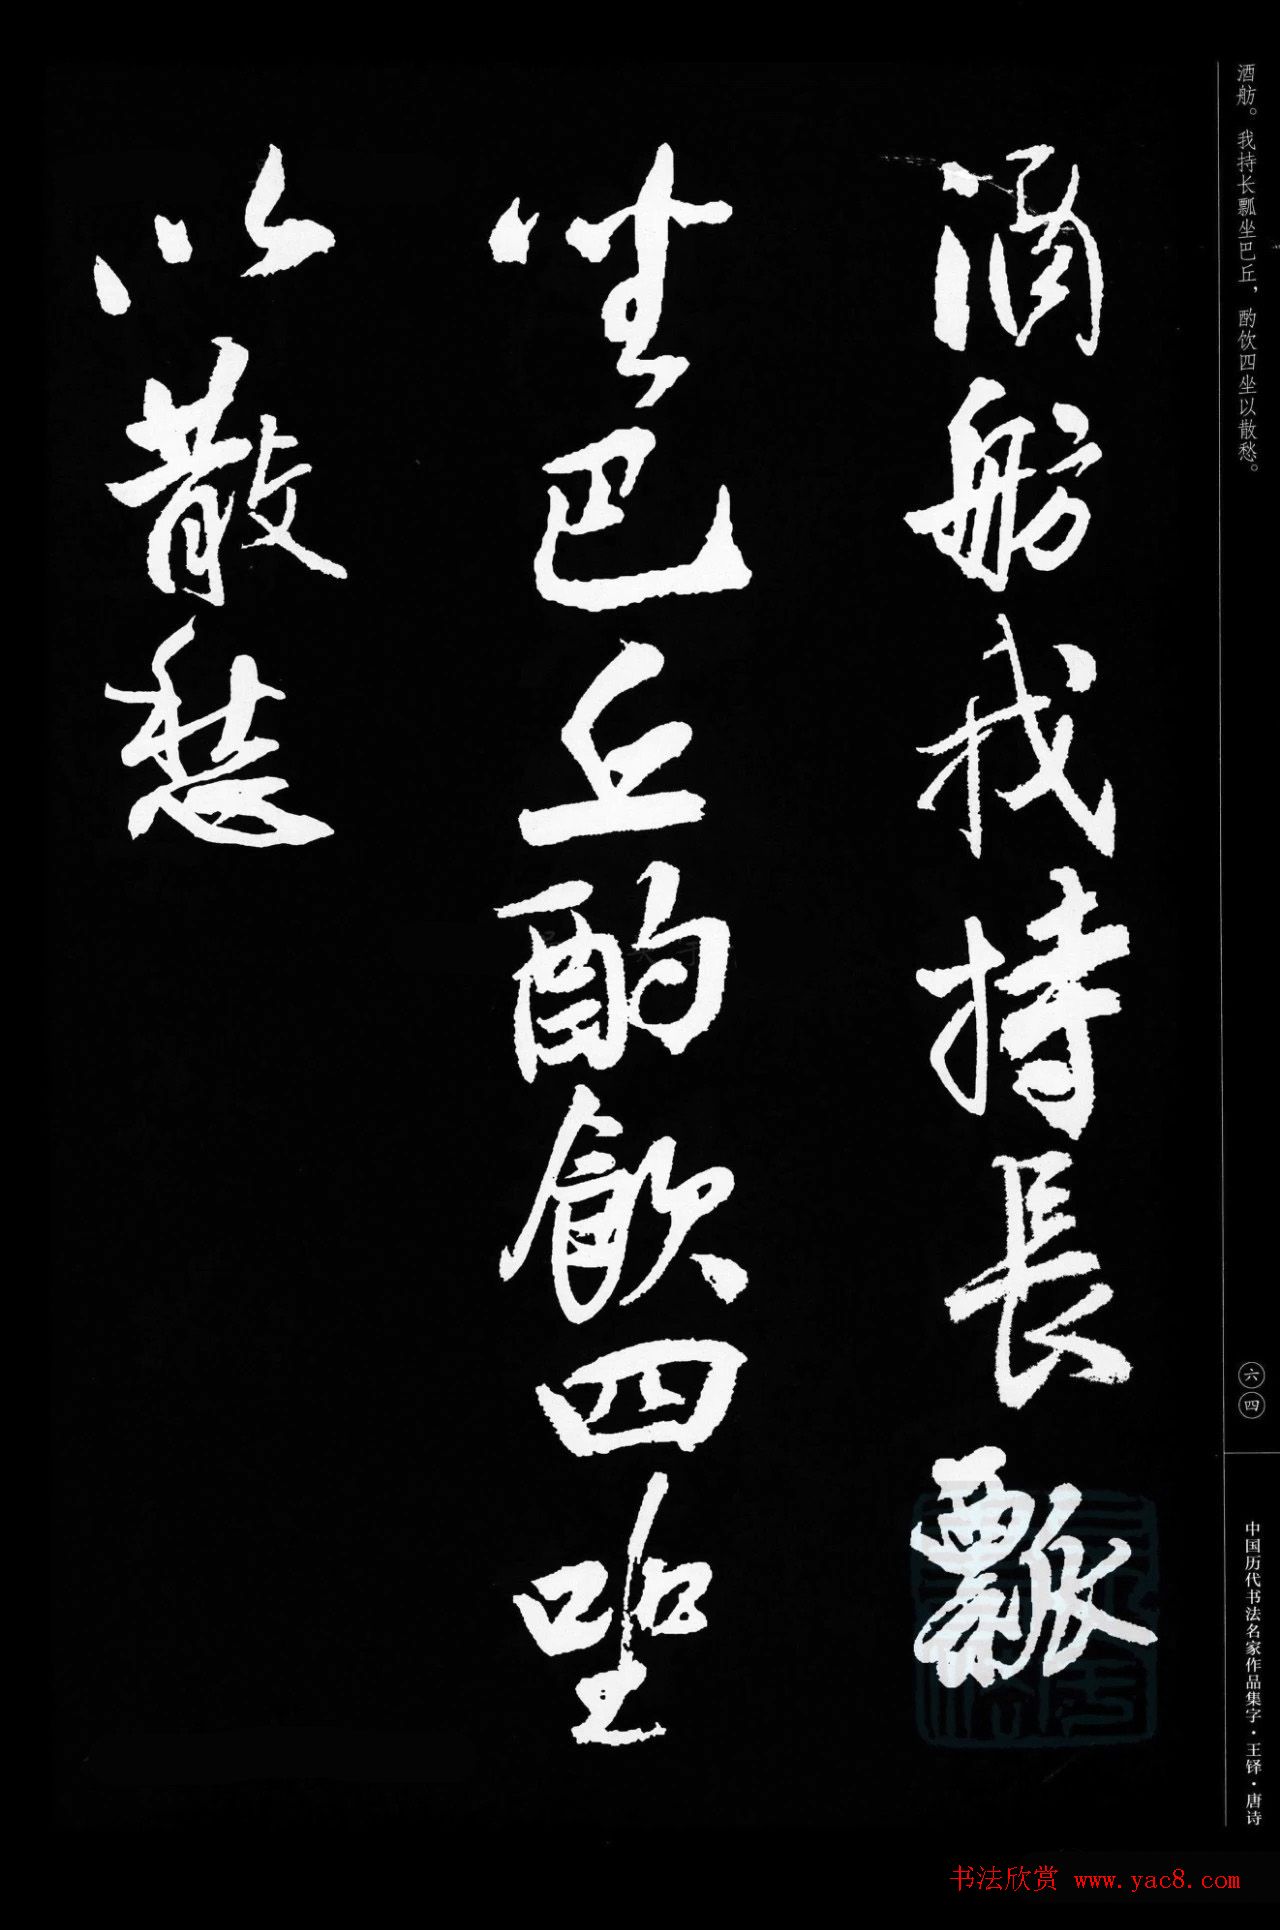 酒舫我持長瓢
坐巴丘酌飲四坐
以散愁
酒舫。我持长瓢坐巴丘，酌饮四坐以散愁。
六四
中国历代书法名家作品集字·王铎·唐诗
书法欣赏 www.yac8.com